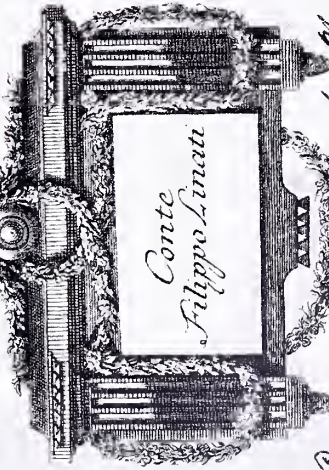 Conte
Filippo Linati